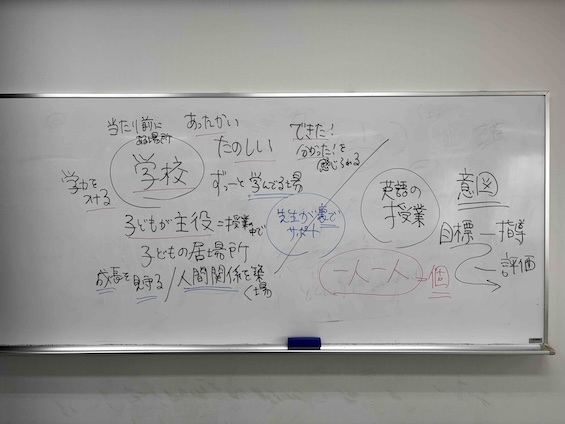 当たり前に
ある場所
あったかい
たのしい
できた！
分かった！を
感じられる
学校
学力を
つける
ずっーと学んでる場
子どもが主役＝授業
中で
先生が裏で
サポート
子どもの居場所
成長を見守る／人間関係を築
く場
英語の
授業
意図
目標ー指導
ー評価
一人一人＝個